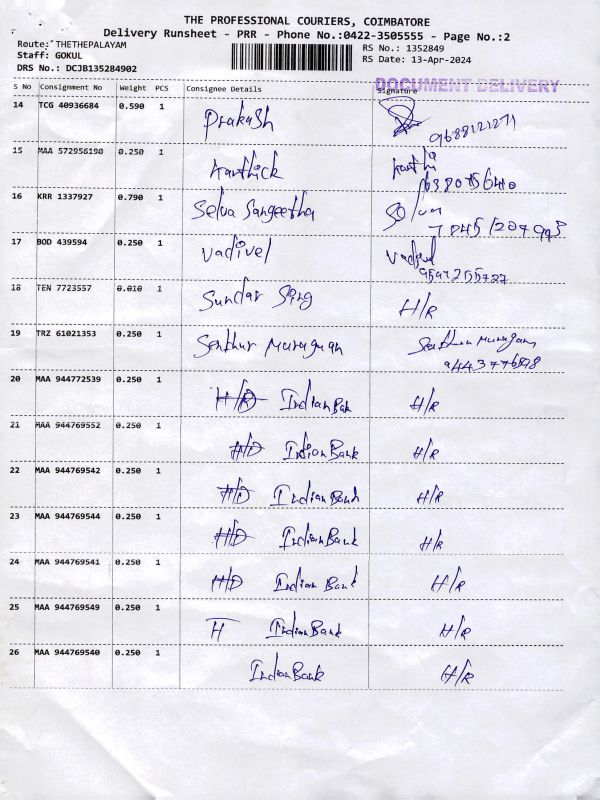 THE PROFESSIONAL COURIERS, COIMBATORE
Delivery Runsheet - PRR - Phone No.:0422-3505555 - Page No.:2
Route: THETHEPALAYAM
Staff: GOKUL
DRS No.: DCJB135284902
RS No.: 1352849
RS Date: 13-Apr-2024
DOCUMENT DELIVERY
S No Consignment No Weight PCS Consignee Details Signature
14 TCG 40936684 0.590 1 Prakash
9688121271
15 MAA 572956190 0.250 1 Karthick
16 KRR 1337927 0.790 1 Selva Sangeetha
17 BOD 439594 0.250 1 Vadivel
18 TEN 7723557 0.010 1 Sundar H/R
19 TRZ 61021353 0.250 1 Senthur Murugan
20 MAA 944772539 0.250 1 H/D Indian Bank H/R
21 MAA 944769552 0.250 1 H/D Indian Bank H/R
22 MAA 944769542 0.250 1 H/D Indian Bank H/R
23 MAA 944769544 0.250 1 H/D Indian Bank H/R
24 MAA 944769541 0.250 1 H/D Indian Bank H/R
25 MAA 944769549 0.250 1 H Indian Bank H/R
26 MAA 944769540 0.250 1 Indian Bank H/R